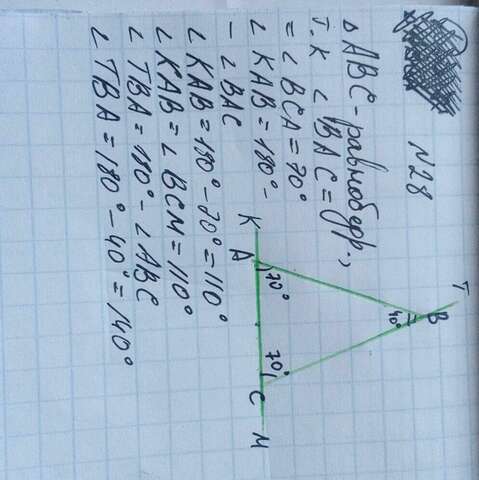 N28
△ABC-равнобедр.,
т.к ∠BAC=
=∠BCA=70°
∠KAB=180°-
-∠BAC
∠KAB=180°-70°=110°
∠KAB=∠BCM=110°
∠TBA=180°-∠ABC
∠TBA=180°-40°=140°
T
B
40°
K
A
70°
70°
C
M